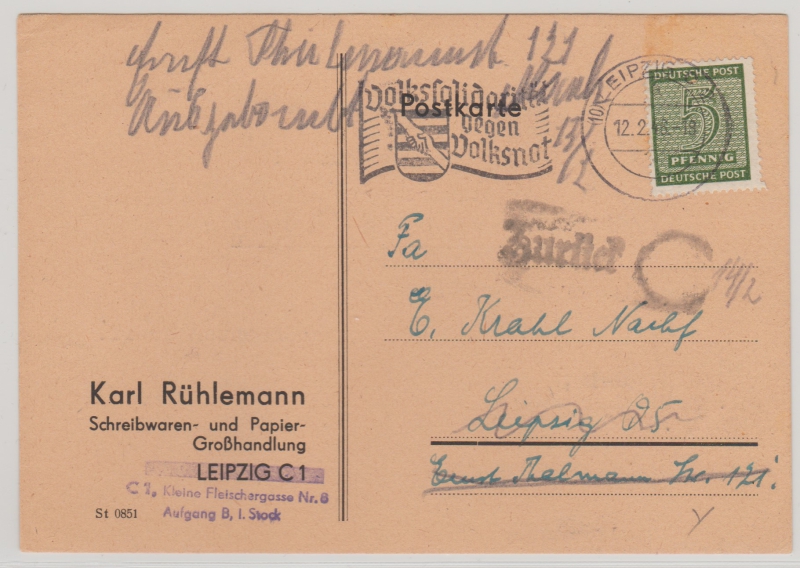 Ernst Thälmannstr. 121
Volkssolidarität
Postkarte
gegen
Volksnot
13/2
LEIPZIG
12.2.
DEUTSCHE POST
5
PFENNIG
DEUTSCHE POST
Zurück
14/2
Fa
E. Krahl Nachf
Leipzig 25
Ernst Thalmann Str. 121.
Karl Rühlemann
Schreibwaren- und Papier-
Großhandlung
LEIPZIG C 1
C 1, Kleine Fleischergasse Nr. 8
Aufgang B, I. Stock
St 0851